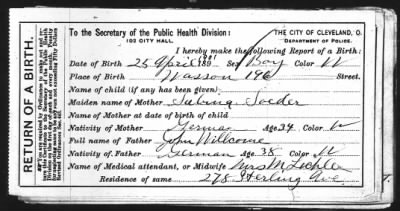 RETURN OF A BIRTH.
To the Secretary of the Public Health Division:
103 CITY HALL.
THE CITY OF CLEVELAND, O.
DEPARTMENT OF POLICE.
I hereby make the following Report of a Birth:
Date of Birth 25 April 1901 Sex Boy Color W
Place of Birth Wasson 196 Street.
Name of child (if any has been given)
Maiden name of Mother Sabina Soeder
Name of Mother at date of birth of child
Nativity of Mother German Age 34 Color W
Full name of Father John
Nativity of Father German Age 38 Color W
Name of Medical attendant, or Midwife Mrs M
Residence of same 278 Sterling Ave